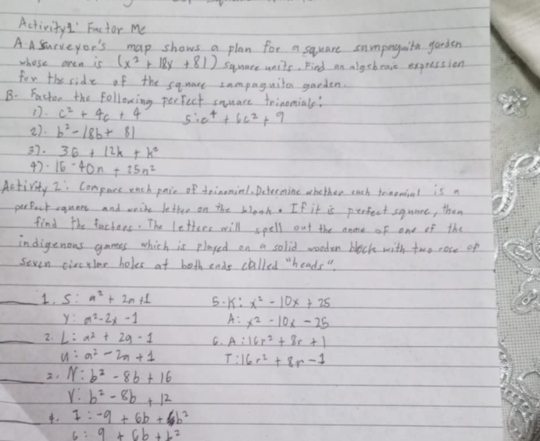 Activity 1: Factor Me
A. A Surveyor's map shows a plan for a square sampaguita garden
whose area is (x² + 18x + 81) square units. Find an algebraic expression
for the side of the square sampaguita garden.
B. Factor the following perfect square trinomials:
1). c² + 4c + 4 5. c⁴ + 6c² + 9
2). b² - 18b + 81
3). 36 + 12k + k²
4). 16 - 40n + 25n²
Activity 2: Compare each pair of trinomial. Determine whether each trinomial is a
perfect square and write letter on the blank. If it is prefect square, then
find the factors. The letters will spell out the name of one of the
indigenous games which is played on a solid wooden block with two rose of
seven circular holes at both ends called "heads".
1. S: a² + 2a + 1 5. K: x² - 10x + 25
Y: a² - 2a - 1 A: x² - 10x - 25
2. L: a² + 2a - 1 6. A: 16r² + 8r + 1
U: a² - 2a + 1 T: 16r² + 8r - 1
3. N: b² - 8b + 16
V: b² - 8b + 12
4. I: -9 + 6b + b²
G: 9 + 6b + b²